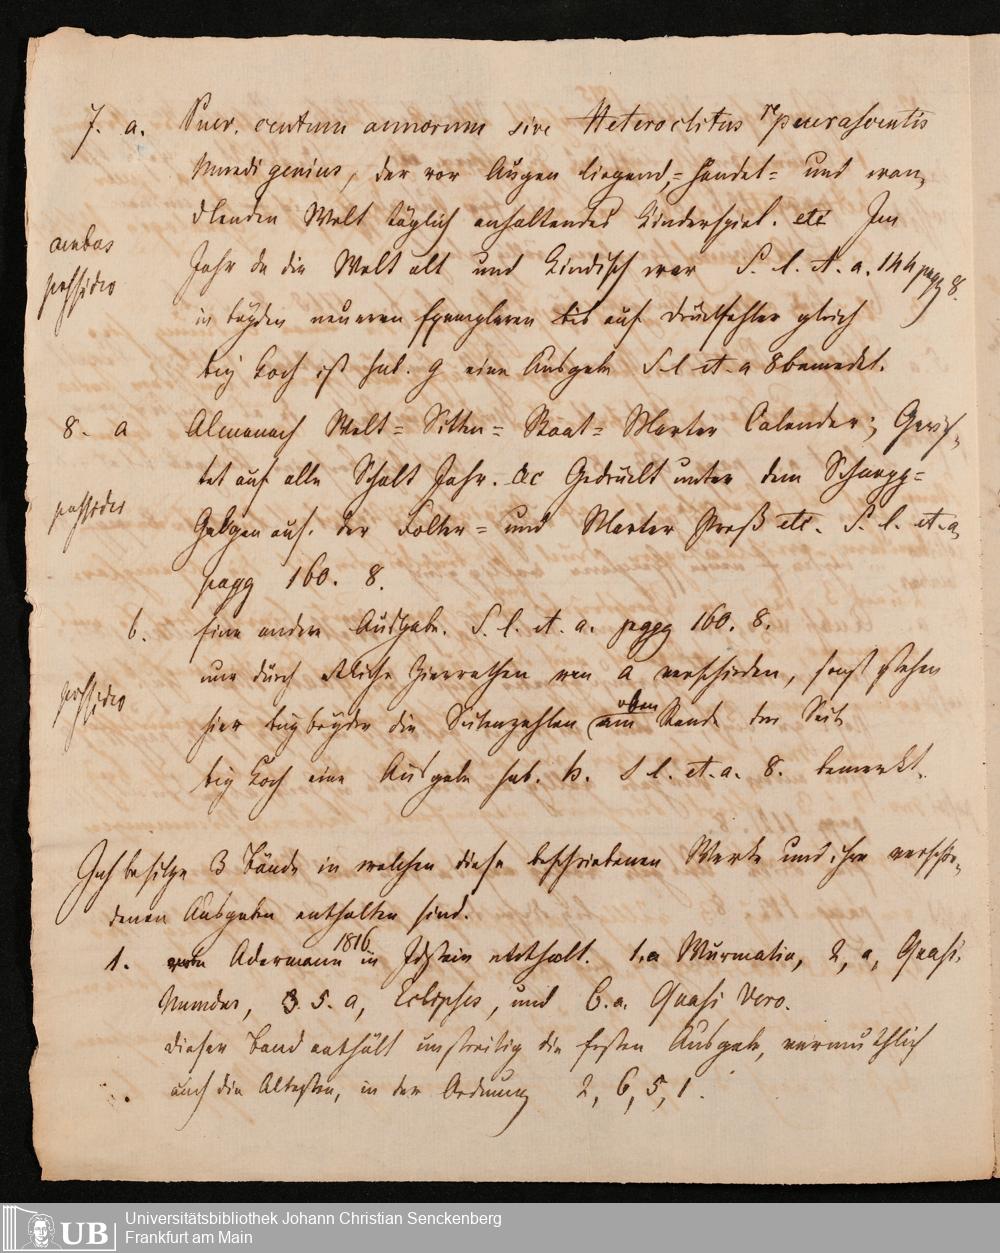 7. a. Puer. centum annorum sive Heteroclitus repuerascentis
Mundi genius, der vor Augen liegend, = handel= und wan,
dlenden Welt täglich anhaltendes Kinderspiel. etc Im
ambas
possideo
Jahr da die Welt alt und Kindisch war S. l. et. a. 144 pagg 8.
in beyden neueren Exemplaren bis auf Druckfehler gleich
bey Koch ist sub. g eine Ausgabe S. l et. a 8 bemerkt.
8. a Almanach Welt= Sitten= Staat= Marter Calender; Gerich,
tet auf alle Schalt Jahr. &c Gedruckt unter dem Schnepp=
possideo
Galgen auf. der Folter= und Marter Preß etc. S. l. et. a,
pagg 160. 8.
b. Eine andere Ausgabe. S. l. et. a. pagg 160. 8.
possideo
nur durch etliche Zierrathen von a verschieden, sonst stehen
hier bey beyden die Seitenzahlen oben am Rande der Seite
bey Koch eine Ausgabe sub. h. S l. et. a. 8. bemerkt.
Ich besitze 3 Bände in welchen diese beschriebenen Werke und ihre verschie,
denen Ausgaben enthalten sind.
1. vom Adermann 1816 in Idstein enthält. 1. a Wurmatia, 2, a, Quasi.
Mundus, 3 5. a, Eclipses, und 6. a. Quasi Vero.
dieser Band enthält unstreitig die ersten Ausgabe, vermuthlich
auch die Altesten, in der Ordnung 2, 6, 5, 1.
UB
Universitätsbibliothek Johann Christian Senckenberg
Frankfurt am Main